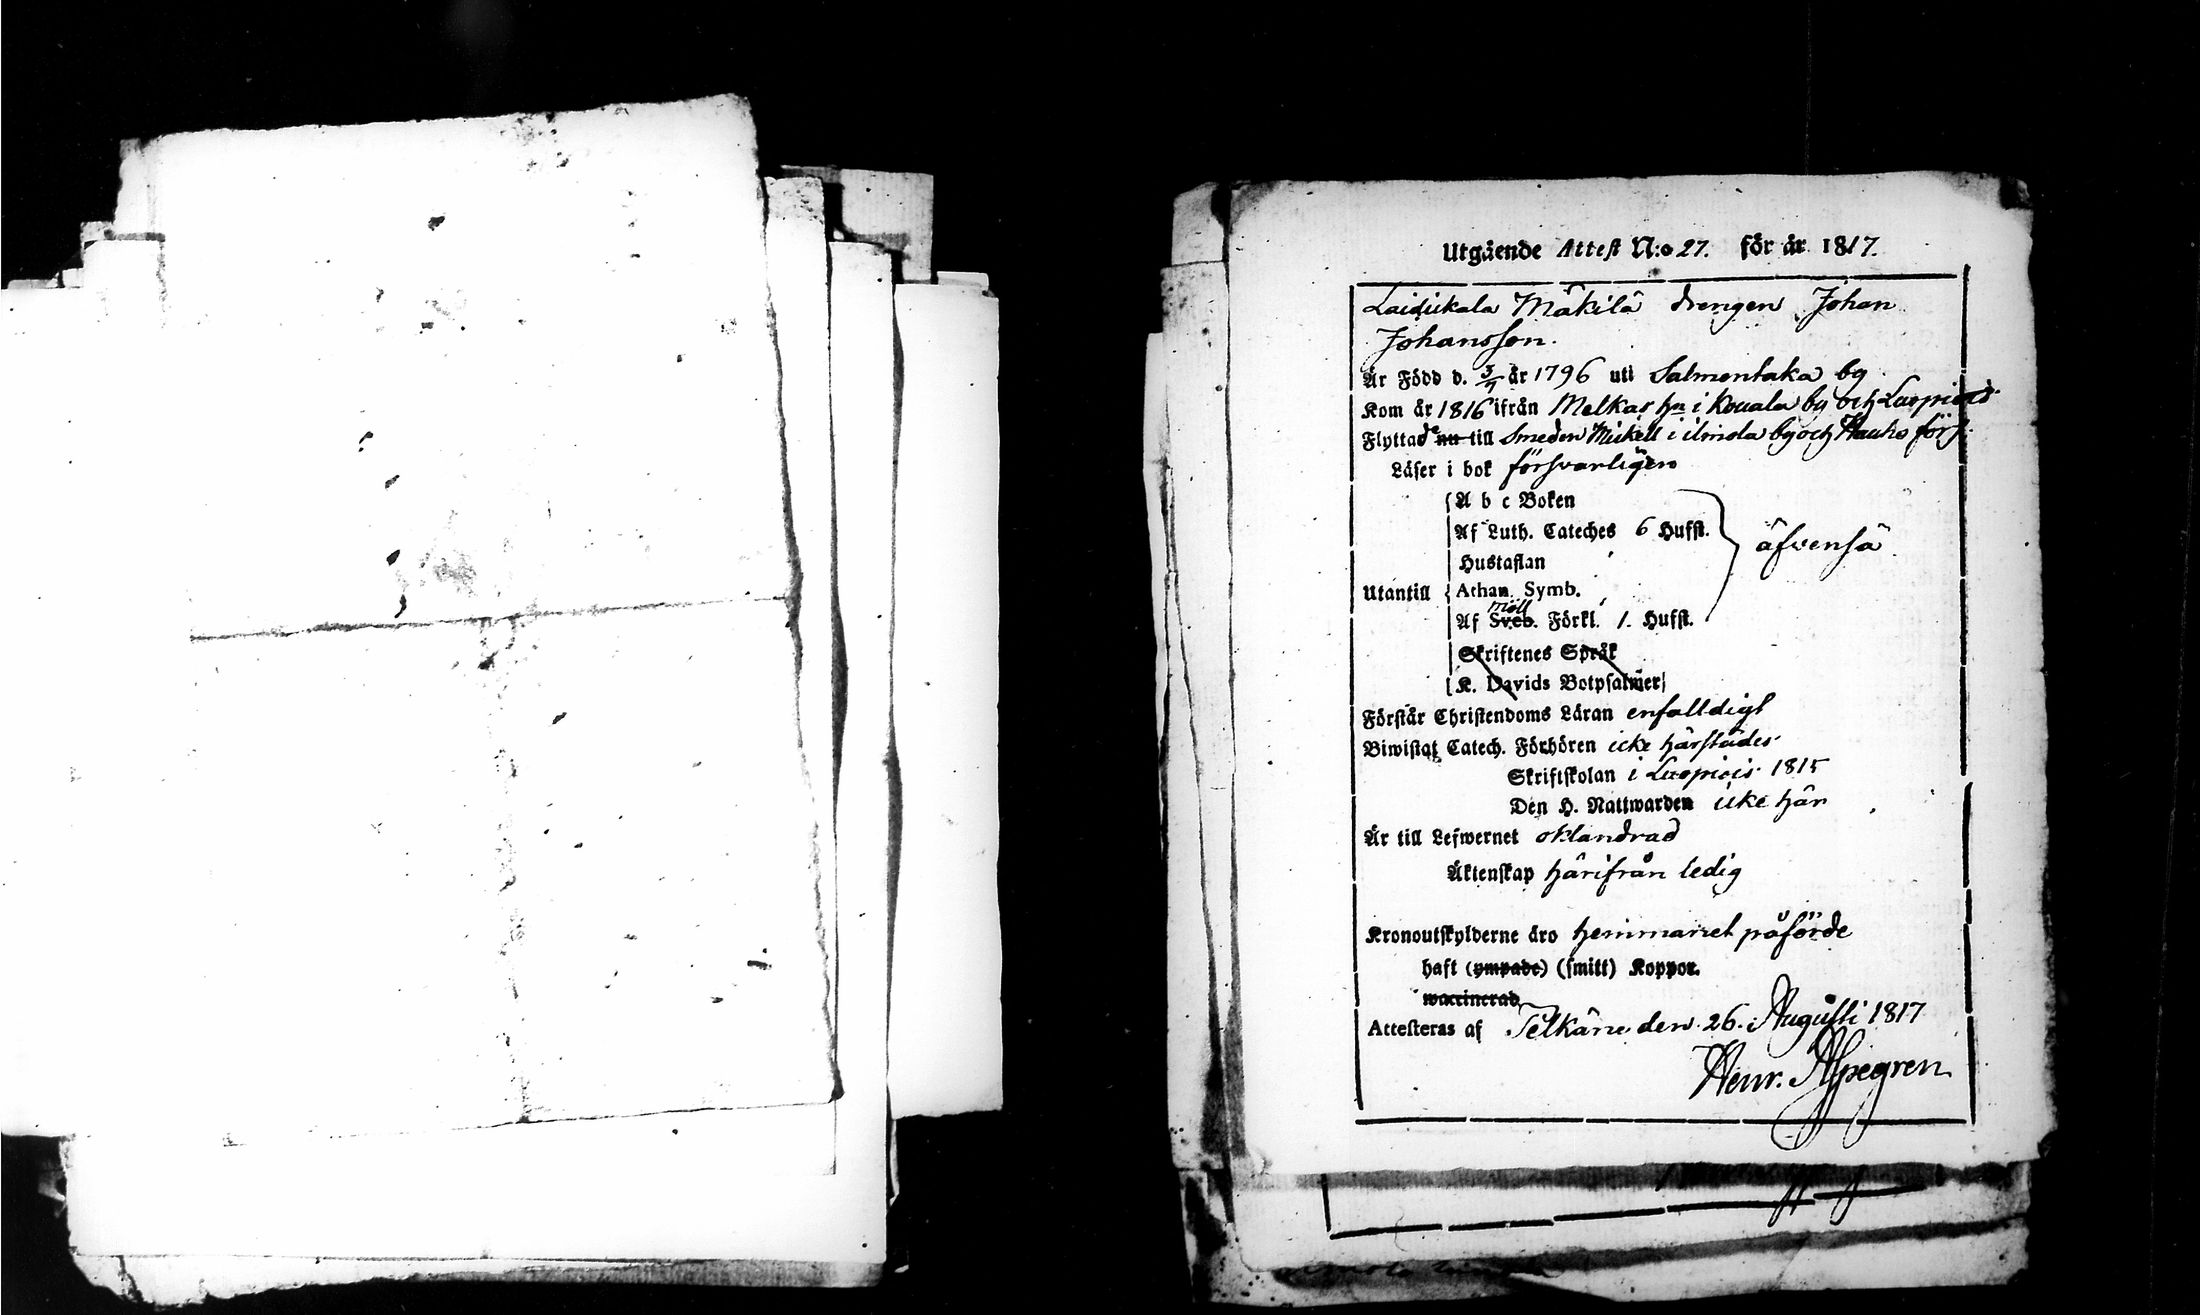 Utgående Attest N:o 27. för år 1817.
Laidikala Mäkilä drengen Johan
Johansson.
Är Född d. 3/7 år 1796 uti Salmentaka by
Kom år 1816 ifrån Melkas hn i Kouala by och Luopiois
Flyttade nu till Smeden Mickell i ilmola by och Hauho förs.
Läser i bok försvarligen
A b c Boken
Af Luth. Cateches 6 Hufst.
Hustaflan
äfvenså
Utantill
Athan. Symb.
möll
Af Sveb. Förkl. 1. Hufst.
Skriftenes Språk
K. Davids Botpsalmer
Förstår Christendoms Läran enfalldigt
Biwistat Catech. Förhören icke härstädes
Skriftskolan i Luopiois 1815
Den H. Nattwarden icke här
Är till Lefwernet oklandrad
Äktenskap härifrån ledig
Kronoutskylderne äro hemmanet påförde
haft (ympade) (smitt) Koppor.
waccinerad
Attesteras af Pelkäne den 26. Augusti 1817
Henr. Aspegren